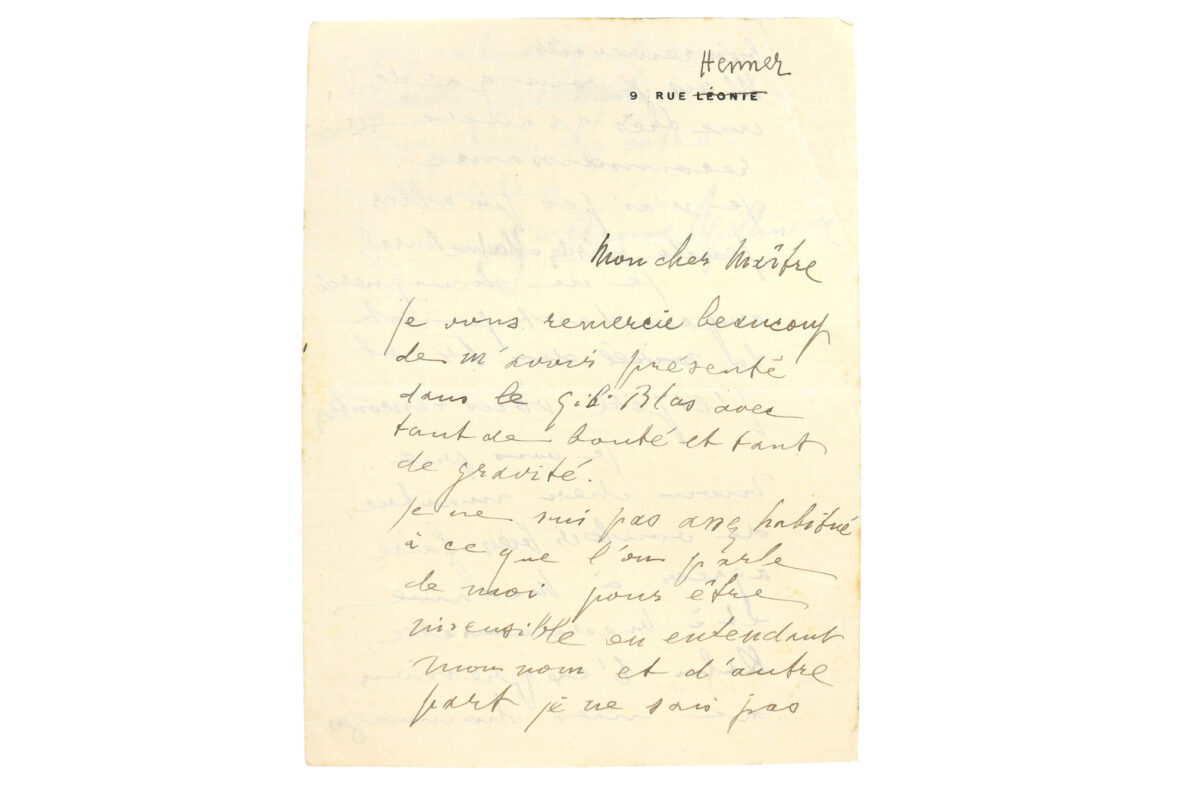 Henner
9 RUE LÉONIE
Mon cher Maître
Je vous remercie beaucoup
de m'avoir présenté
dans le Gil Blas avec
tant de bonté et tant
de gravité.
Je ne suis pas assez habitué
à ce que l'on parle
de moi pour être
insensible en entendant
mon nom et d'autre
part je ne suis pas